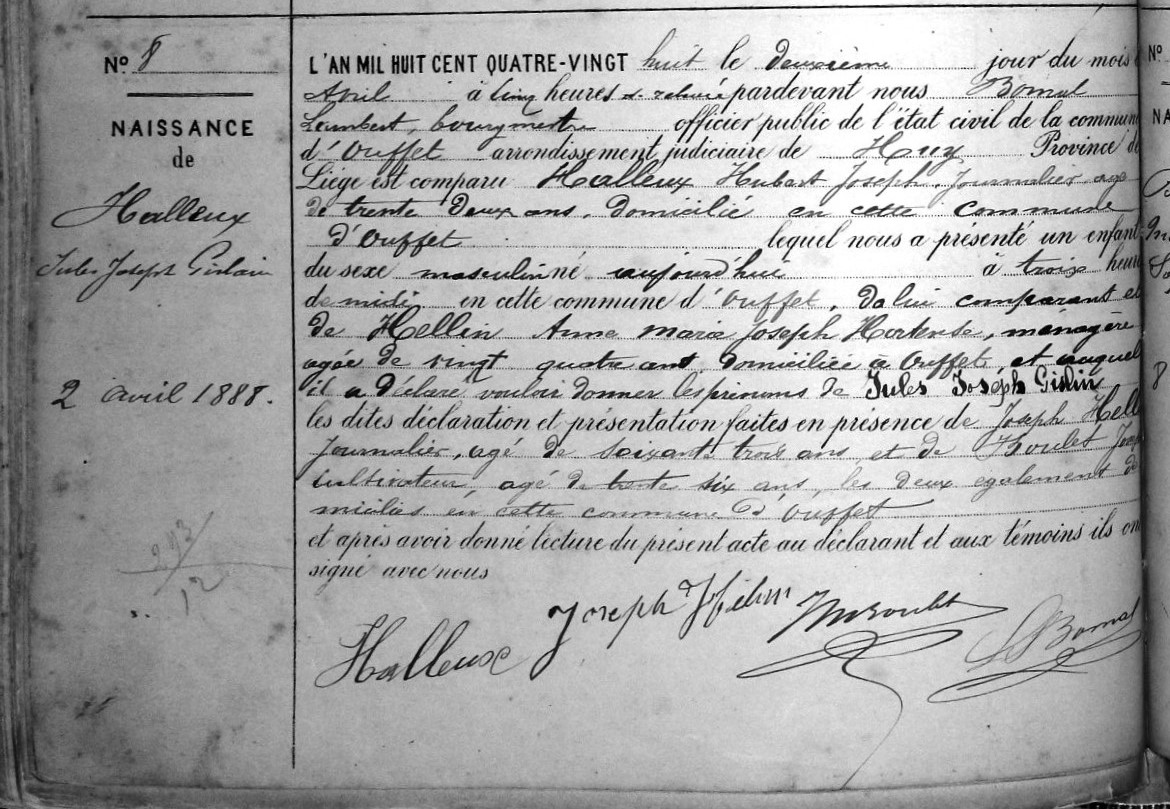 Nº 8
NAISSANCE
de
Halleux
Jules Joseph Gislain
2 avril 1888.
293/
12
L'AN MIL HUIT CENT QUATRE-VINGT huit le deuxième jour du mois
Avril à cinq heures de relevée pardevant nous Bomal
Lambert, bourgmestre officier public de l'état civil de la commun
d'Ouffet arrondissement judiciaire de Huy Province de
Liége est comparu Halleux Hubert Joseph, Journalier agé
de trente deux ans, domicilié en cette commune
d'Ouffet lequel nous a présenté un enfant
du sexe masculin né aujourd'hui à trois heure
de midi en cette commune d'Ouffet, de lui comparant et
de Hellin Anne Marie Joseph Hortense, ménagère
agée de vingt quatre ans domiciliée à Ouffet et auquel
il a déclaré vouloir donner les prénoms de Jules Joséph Gislin
les dites déclaration et présentation faites en présence de Joseph Hell
Journalier, agé de soixante trois ans et de Joseph
cultivateur, agé de trente six ans, les deux egalement do
miciliés en cette commune d'Ouffet
et après avoir donné lecture du présent acte au déclarant et aux témoins ils on
signé avec nous
Halleux
Joseph
LBomal
Nº
NA
8